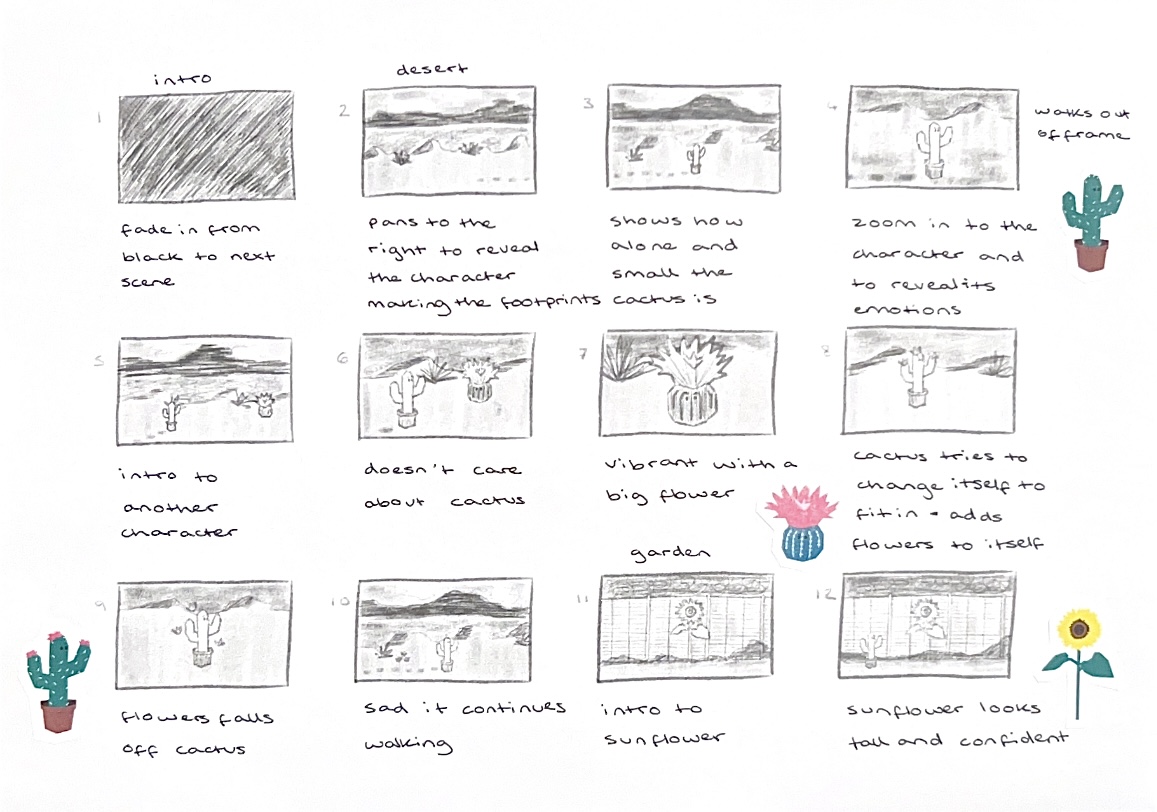 intro
1
fade in from
black to next
scene
desert
2
pans to the
right to reveal
the character
making the footprints
3
shows how
alone and
small the
cactus is
4
walks out
of frame
zoom in to the
character and
to reveal its
emotions
5
intro to
another
character
6
doesn't care
about cactus
7
vibrant with a
big flower
8
cactus tries to
change itself to
fit in - adds
flowers to itself
9
flowers falls
off cactus
10
sad it continues
walking
garden
11
intro to
sunflower
12
sunflower looks
tall and confident